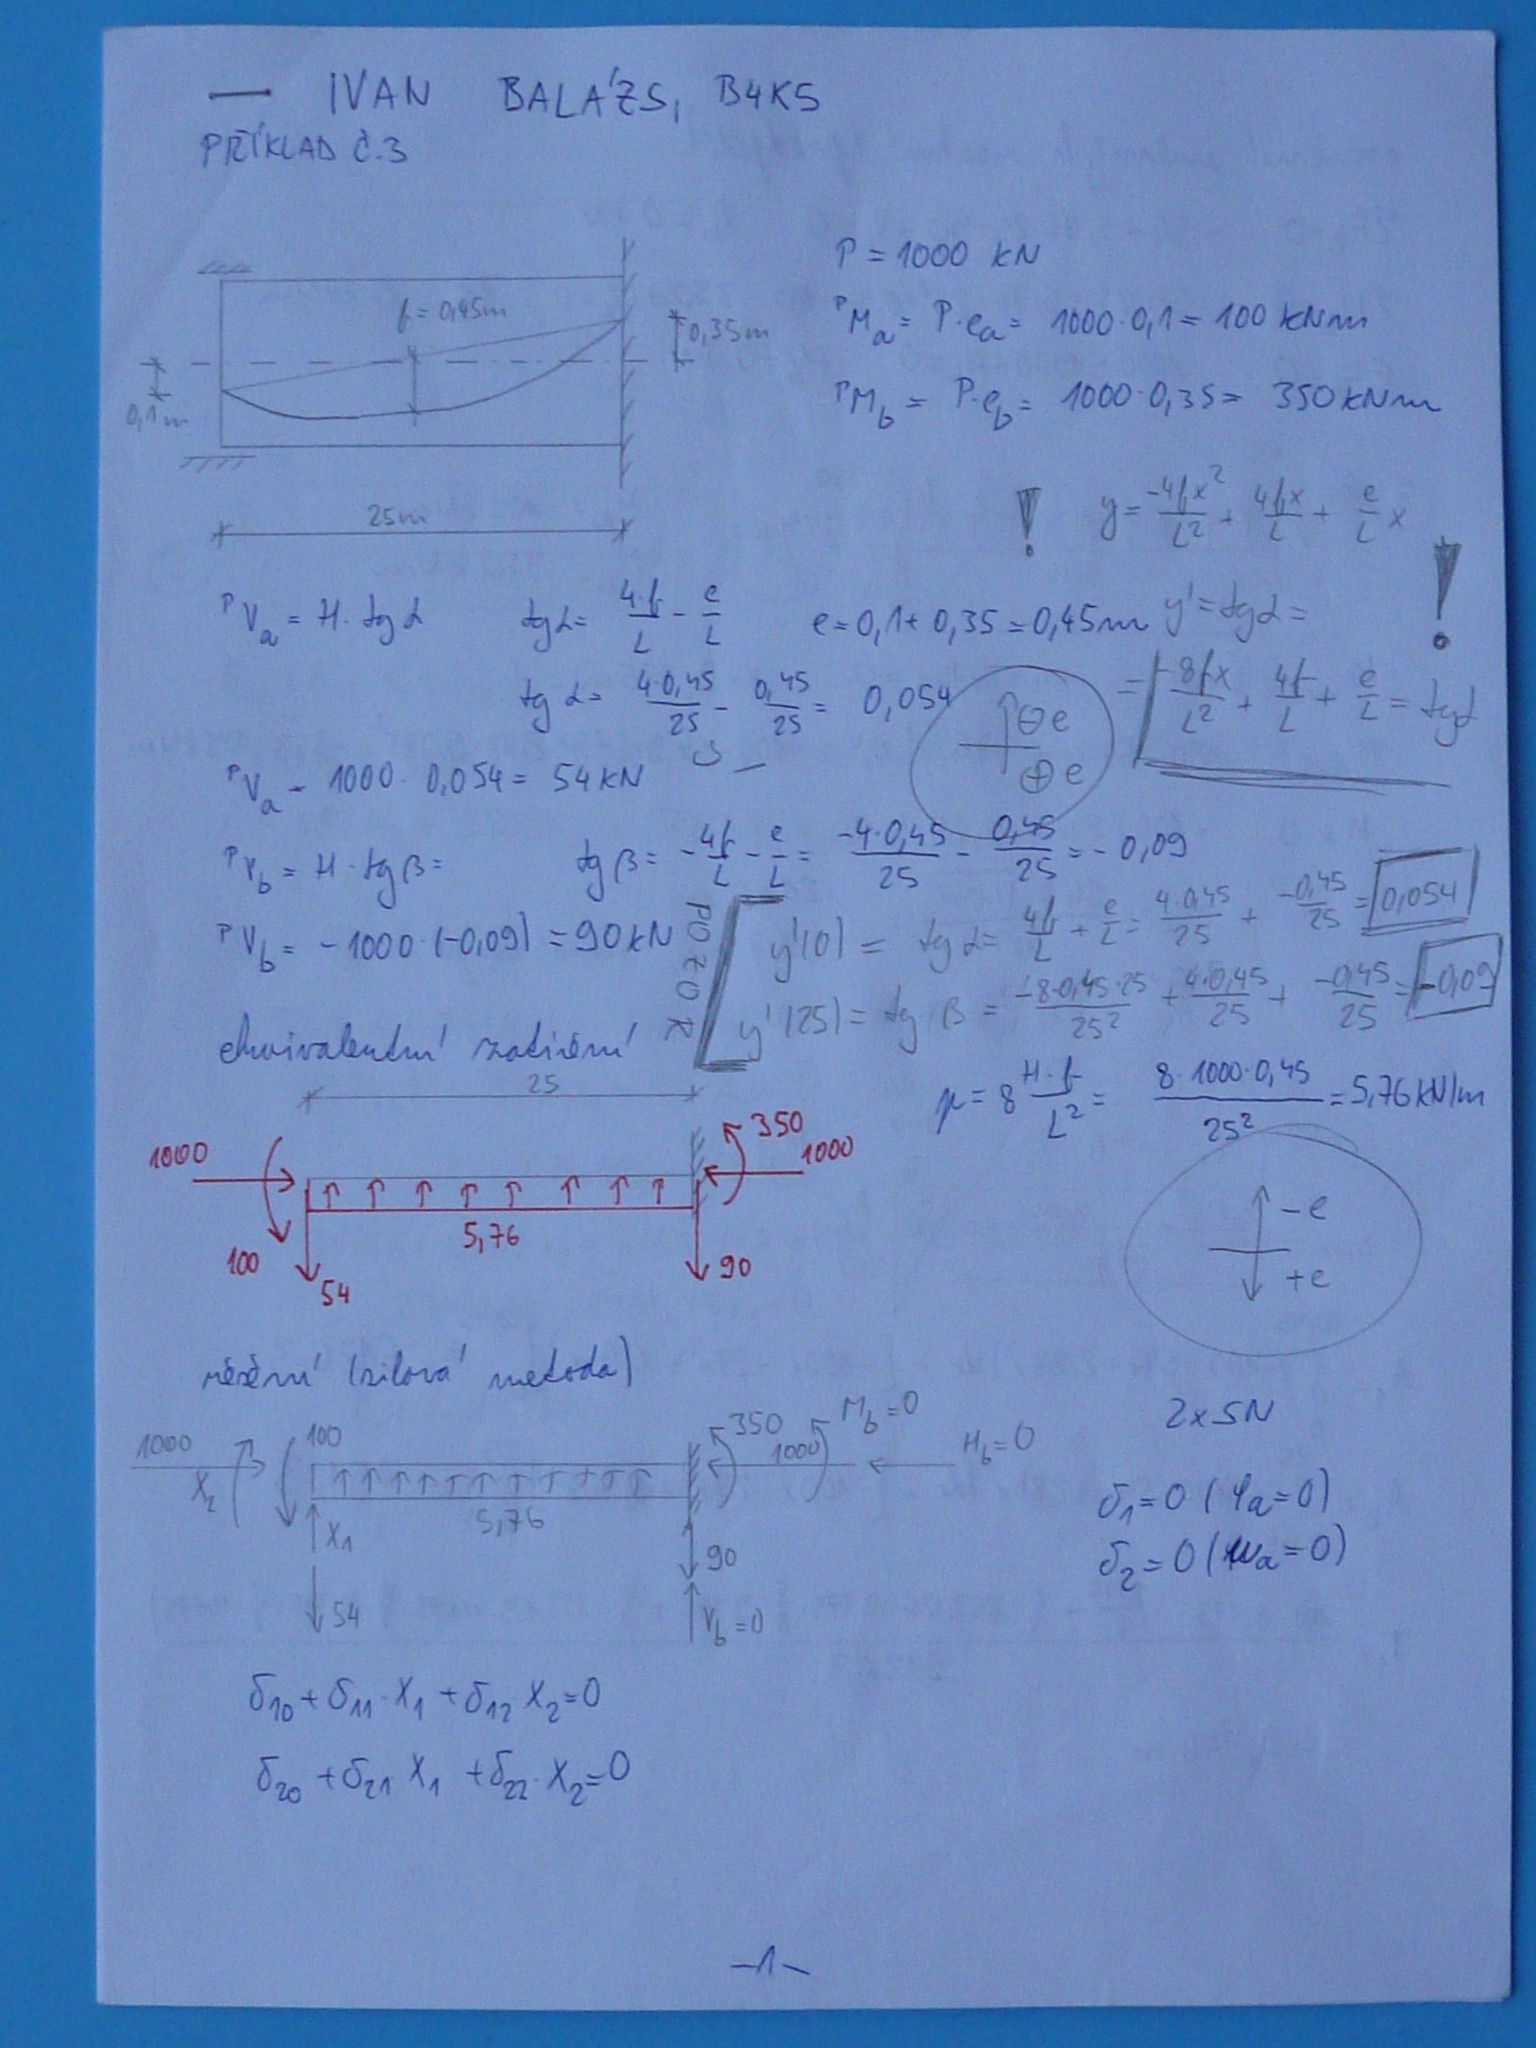 — IVAN BALÁZS, B4K5
PŘÍKLAD Č.3
P = 1000 kN
f = 0,45m
0,35m
ᴾMₐ = P·eₐ = 1000·0,1 = 100 kNm
0,1m
ᴾM_b = P·e_b = 1000·0,35 = 350 kNm
25m
! y = -4fx²/L² + 4fx/L + e/L x !
ᴾVₐ = H·tgα tgα = 4·f/L - e/L e = 0,1 + 0,35 = 0,45m y' = tgα =
tgα = 4·0,45/25 - 0,45/25 = 0,054
⊖e
⊕e
= -8fx/L² + 4f/L + e/L = tgα
ᴾVₐ = 1000·0,054 = 54 kN
ᴾV_b = H·tgβ = tgβ = -4f/L - e/L = -4·0,45/25 - 0,45/25 = -0,09
ᴾV_b = -1000·(-0,09) = 90 kN
POZOR
y'(0) = tgα = 4f/L + e/L = 4·0,45/25 + -0,45/25 = 0,054
y'(25) = tgβ = -8·0,45·25/25² + 4·0,45/25 + -0,45/25 = -0,09
ekvivalentní zatížení
p = 8 H·f/L² = 8·1000·0,45/25² = 5,76 kN/m
25
1000
350
1000
5,76
100
54
90
-e
+e
řešení (silová metoda)
2x SN
1000
X₂
100
350
1000
M_b = 0
H_b = 0
5,76
X₁
54
90
V_b = 0
δ₁ = 0 (φₐ = 0)
δ₂ = 0 (wₐ = 0)
δ₁₀ + δ₁₁·X₁ + δ₁₂·X₂ = 0
δ₂₀ + δ₂₁ X₁ + δ₂₂·X₂ = 0
-1-